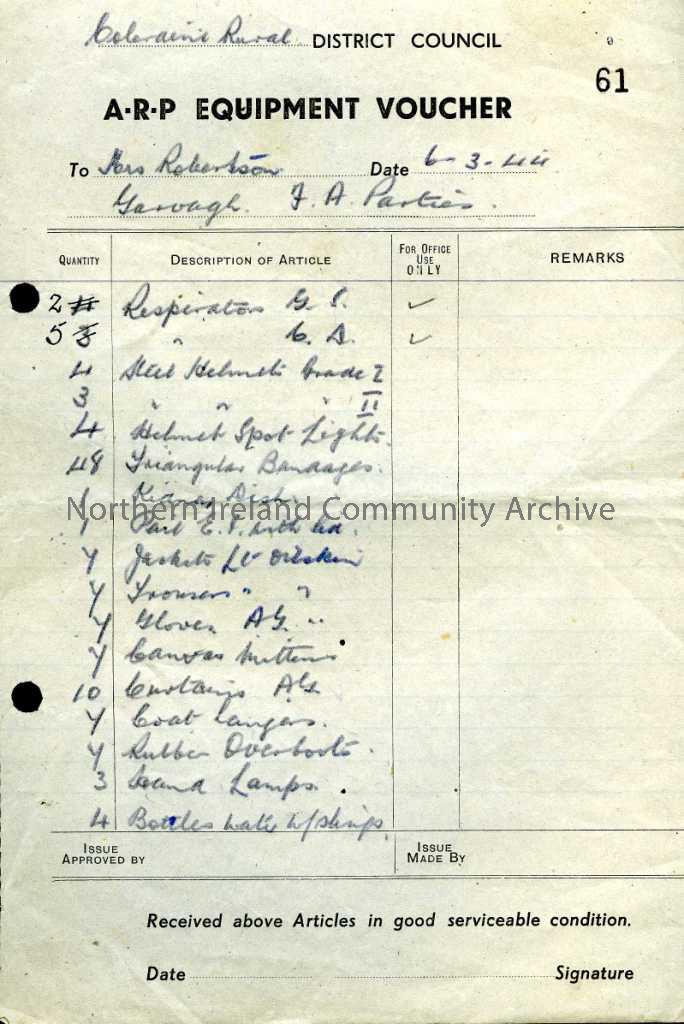 Coleraine Rural DISTRICT COUNCIL
61
A·R·P EQUIPMENT VOUCHER
To Mrs Robertson Date 6-3-44
Garvagh. F. A. Parties.
QUANTITY DESCRIPTION OF ARTICLE FOR OFFICE USE ONLY REMARKS
2 Respirators G. S. ✓
5 3 " C. D. ✓
4 Steel Helmets Grade I
3 " " " II
4 Helmet Spot Lights.
48 Triangular Bandages.
1 Kidney Dish.
Northern Ireland Community Archive
1 Pail E. I. with lid.
4 Jackets Lt Oilskin
4 Trousers " "
4 Gloves AG "
4 Canvas Mittens
10 Curtains AG
4 Coat hangers.
4 Rubber Overboots.
3 Hand Lamps.
4 Bottles water w/slings
ISSUE APPROVED BY ISSUE MADE BY
Received above Articles in good serviceable condition.
Date Signature